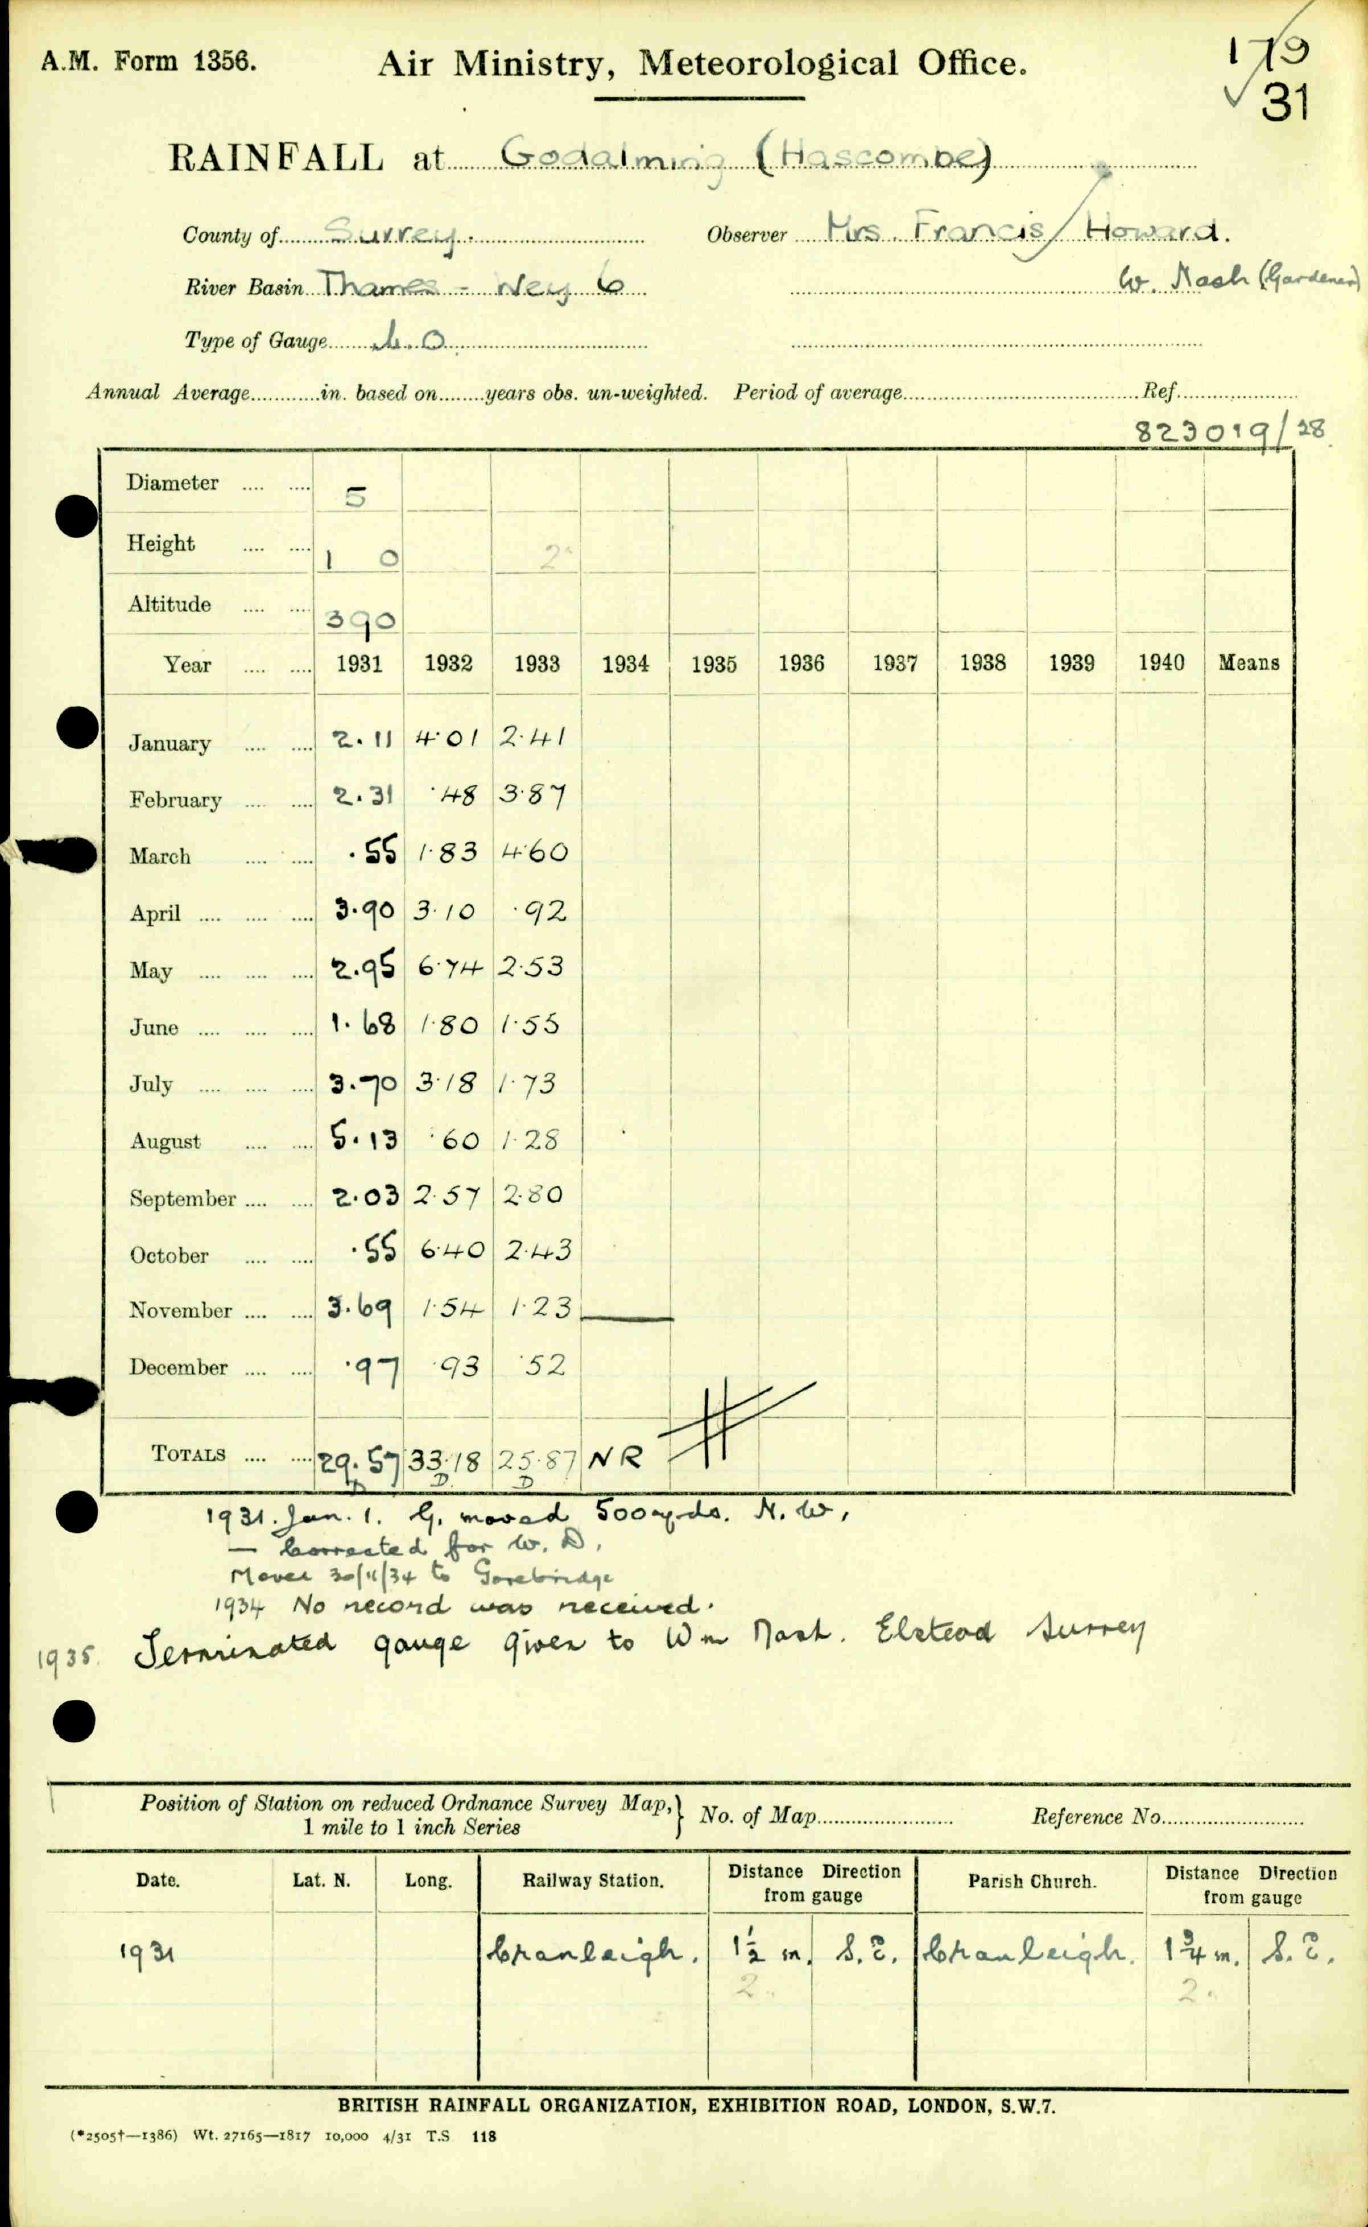 A.M. Form 1356. Air Ministry, Meteorological Office. 179
31
RAINFALL at Godalming (Hascombe)
County of Surrey. Observer Mrs. Francis Howard.
River Basin Thames - Wey 6 W. Nash (Gardener)
Type of Gauge
Annual Average in. based on years obs. un-weighted. Period of average Ref.
823019/28
Diameter 5
Height 1 0 2
Altitude 390
Year 1931 1932 1933 1934 1935 1936 1937 1938 1939 1940 Means
January 2.11 4.01 2.41
February 2.31 .48 3.87
March .55 1.83 4.60
April 3.90 3.10 .92
May 2.95 6.74 2.53
June 1.68 1.80 1.55
July 3.70 3.18 1.73
August 5.13 .60 1.28
September 2.03 2.57 2.80
October .55 6.40 2.43
November 3.69 1.54 1.23
December .97 .93 .52
TOTALS 29.57 33.18 25.87 NR
D D D
1931. Jan. 1. G. moved 500 yds. N.W.
— Corrected for W. D.
Moved 30/11/34 to Gorebridge
1934 No record was received.
1935. Terminated gauge given to Wm Nash. Elstead Surrey
Position of Station on reduced Ordnance Survey Map, } No. of Map Reference No.
1 mile to 1 inch Series
Date. Lat. N. Long. Railway Station. Distance Direction from gauge Parish Church. Distance Direction from gauge
1931 Cranleigh. 1½ m. S.E. Cranleigh. 1¾ m. S.E.
2. 2.
BRITISH RAINFALL ORGANIZATION, EXHIBITION ROAD, LONDON, S.W.7.
(*2505†—1386) Wt. 27165—1817 10,000 4/31 T.S 118